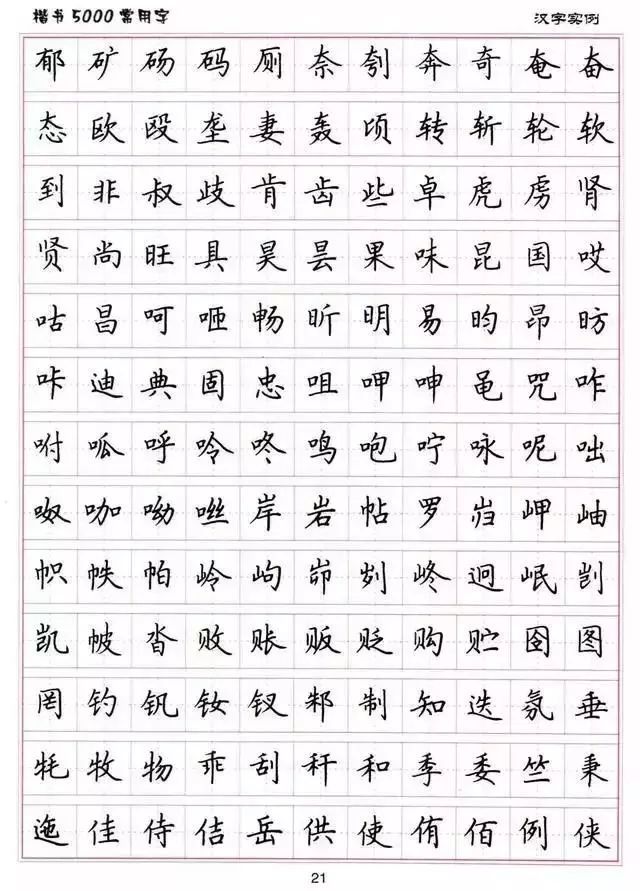 楷书5000常用字 汉字实例
郁 矿 砀 码 厕 奈 刳 奔 奇 奄 奋
态 欧 殴 垄 妻 轰 顷 转 斩 轮 软
到 非 叔 歧 肯 齿 些 卓 虎 虏 肾
贤 尚 旺 具 昊 昙 果 味 昆 国 哎
咕 昌 呵 咂 畅 昕 明 易 昀 昂 昉
咔 迪 典 固 忠 咀 呷 呻 黾 咒 咋
咐 呱 呼 呤 咚 鸣 咆 咛 咏 呢 咄
呶 咖 呦 咝 岸 岩 帖 罗 岿 岬 岫
帜 帙 帕 岭 岣 峁 刿 峂 迥 岷 剀
凯 帔 沓 败 账 贩 贬 购 贮 囹 图
罔 钓 钒 钕 钗 邾 制 知 迭 氛 垂
牦 牧 物 乖 刮 秆 和 季 委 竺 秉
迤 佳 侍 佶 岳 供 使 侑 佰 例 侠
21